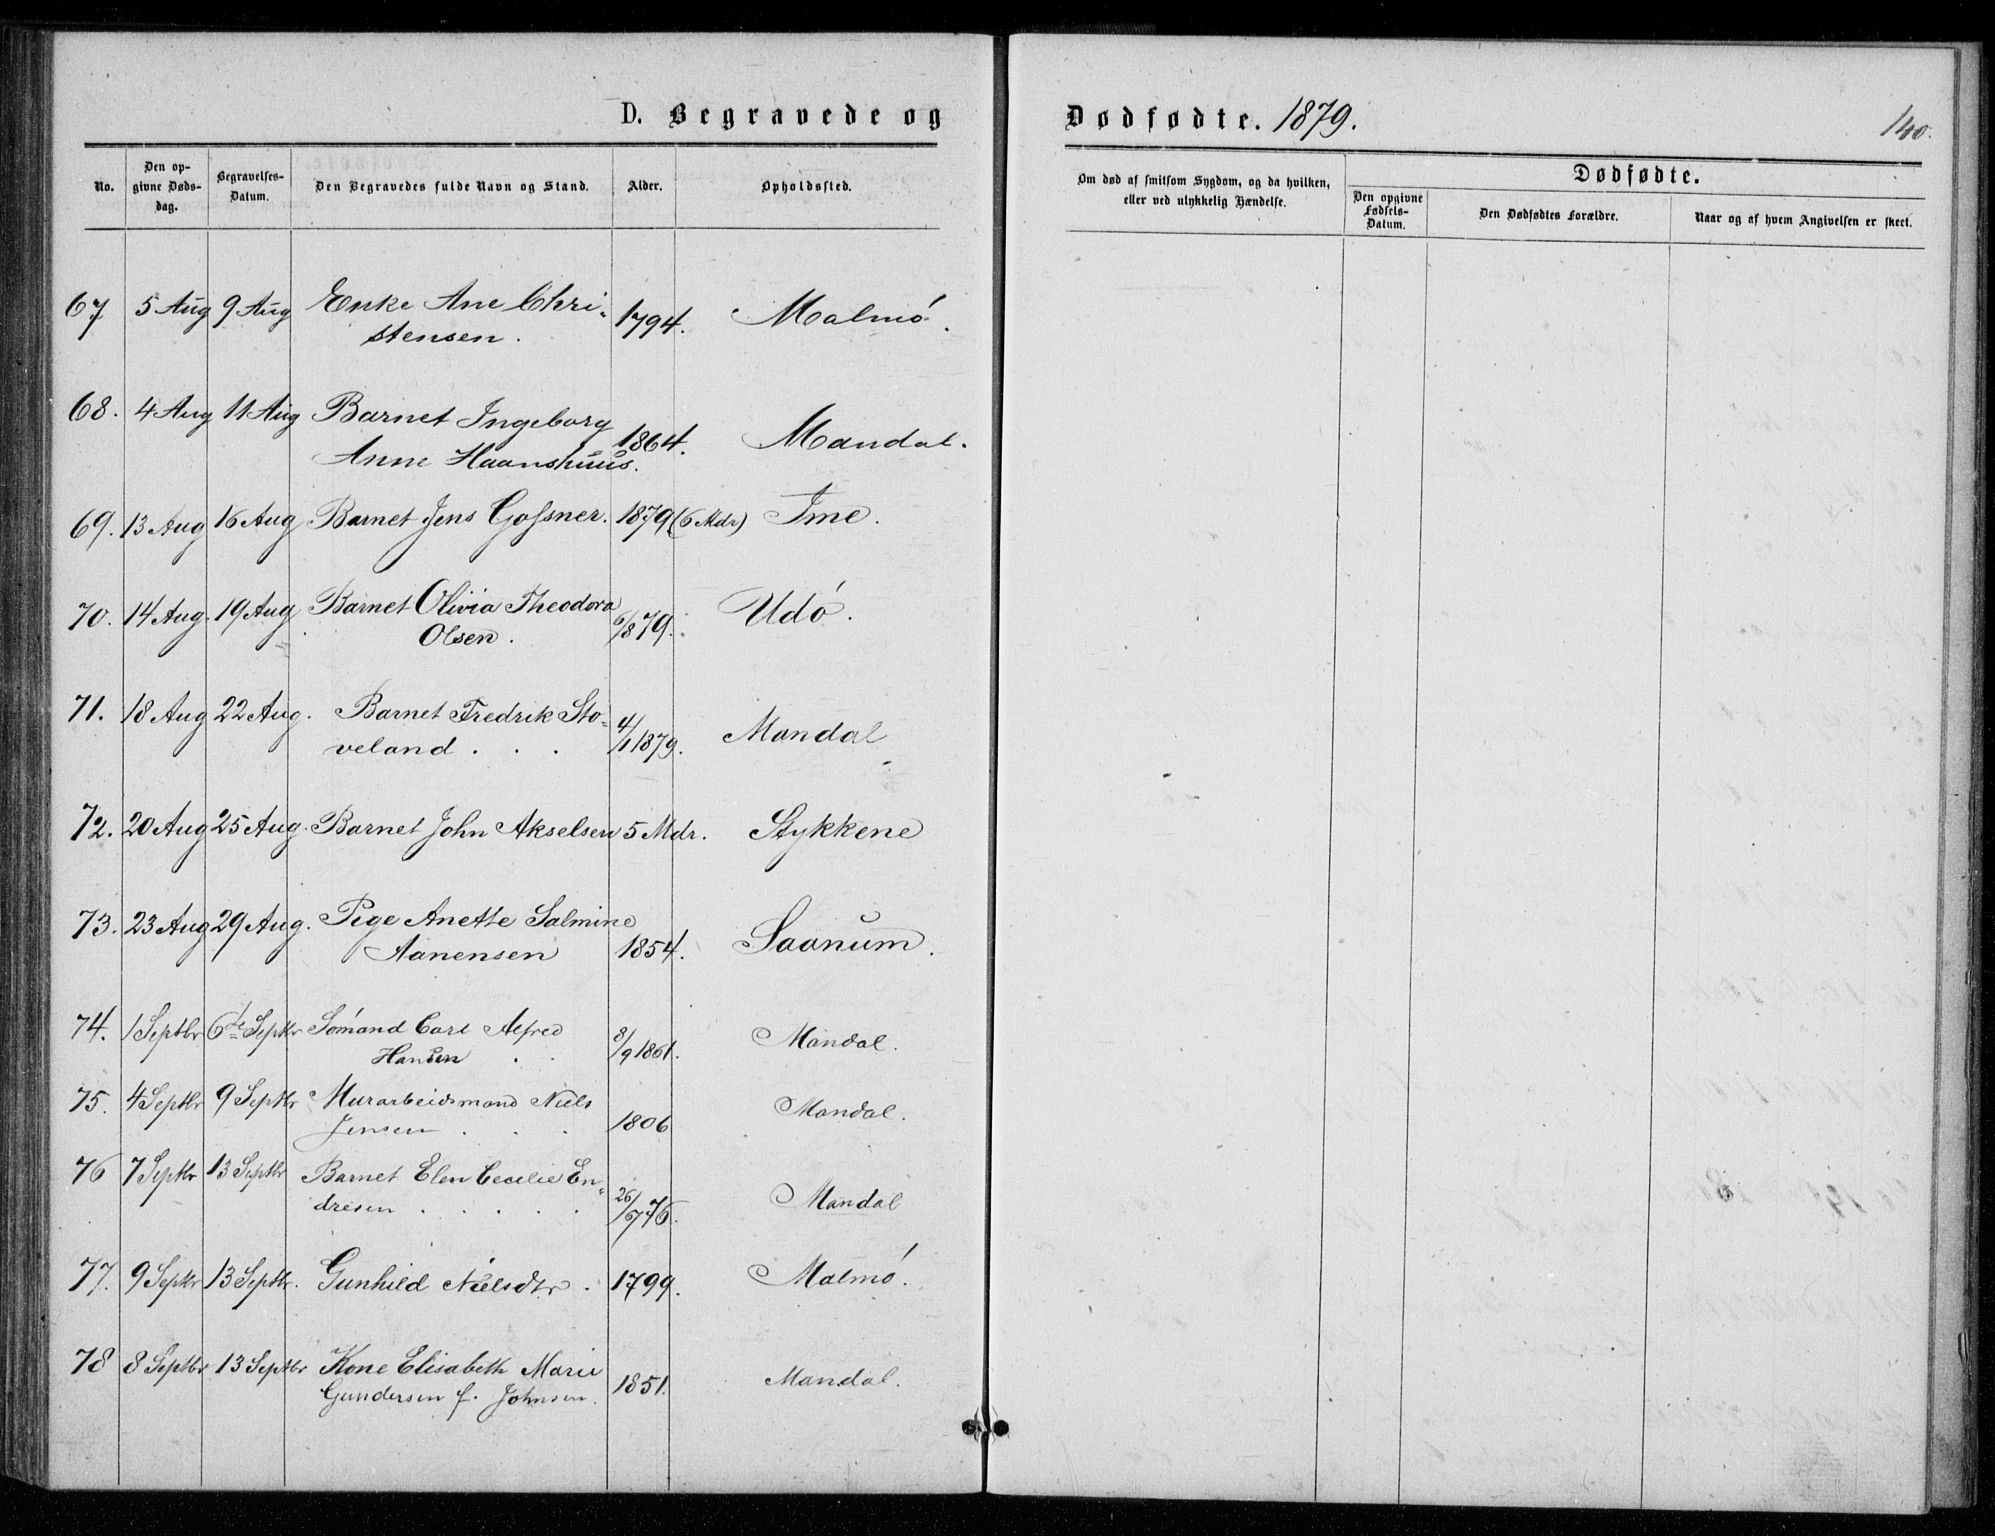 D. Begravede og
Dødfødte. 1879.
140.
No.
Den op-
givne Døds-
dag.
Begravelses-
Datum.
Den Begravedes fulde Navn og Stand.
Alder.
Opholdssted.
Om død af smitsom Sygdom, og da hvilken,
eller ved ulykkelig Hændelse.
Dødfødte.
Den opgivne
Fødsels-
Datum.
Den Dødfødtes Forældre.
Naar og af hvem Angivelsen er skeet.
67 5 Aug 9 Aug Enke Ane Chri-
stensen. 1794. Malmö.
68. 4 Aug 11 Aug Barnet Ingeborg
Anne Haanshuus. 1864. Mandal.
69. 13 Aug 16 Aug Barnet Jens Gossner. 1879 (6 Mdr) Ime.
70. 14 Aug. 19 Aug Barnet Olivia Theodora
Olsen. 6/8 79. Udó.
71. 18 Aug 22 Aug. Barnet Fredrik Sto-
veland . . . 4/1 1879. Mandal
72. 20 Aug 25 Aug. Barnet John Akselsen 5 Mdr. Stykkene
73. 23 Aug 29 Aug. Pige Anette Salmine
Aanensen 1854. Saanum.
74. 1 Septbr 6te Septbr Sömand Carl Alfred
Hansen . . 8/9 1861. Mandal.
75. 4 Septbr 9 Septbr Murarbeidsmand Niels
Jensen . . . 1806 Mandal.
76 7 Septbr 13 Septbr Barnet Elen Cecilie En-
dresen . . . . . 26/6 76. Mandal
77. 9 Septbr 13 Septbr. Gunhild Nielsdtr . 1799. Malmö.
78 8 Septbr 13 Septbr Kone Elisabeth Marie
Gundersen f. Johnsen. 1851. Mandal.